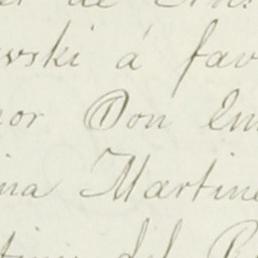 de
wski á fav
nor Don Em
ina Martine
del